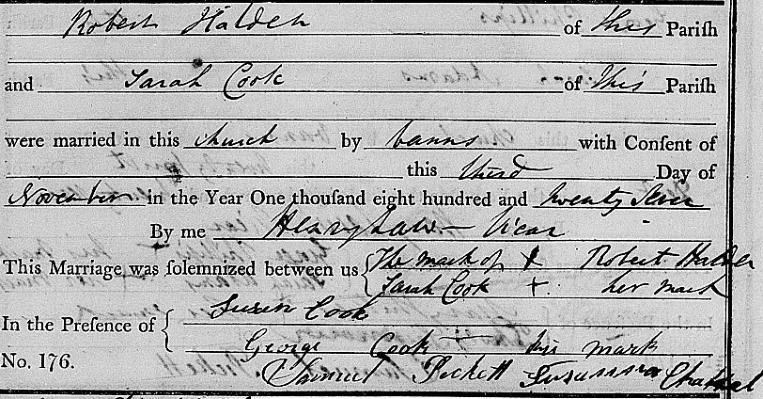 Robert Halden of this Parish
and Sarah Cook of this Parish
were married in this church by banns with Consent of
this third Day of
November in the Year One thousand eight hundred and twenty
By me Henry Law Vicar
This Marriage was solemnized between us { The mark of X Robert Halden
Sarah Cook + her mark
In the Presence of { Susan Cook
George Cook + his mark
No. 176. Samuel Peckett Susanna